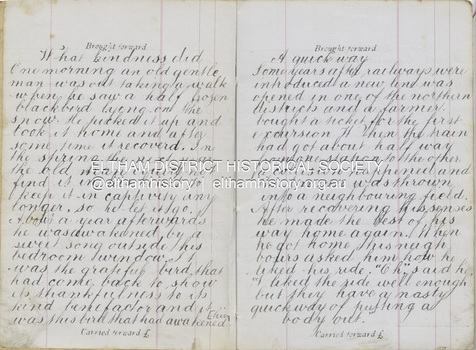 Brought forward
What kindness did
One morning an old gentle
man was out taking a walk
when he saw a half frozen
blackbird lying on the
snow. He picked it up and
took it home and after
some time it recoverd. In
the spring
the old man
find it in
keep it in captivity any
longer, so he let it go.
About a year afterwards
he was awakened by a
sweet song outside his
bedroom window. It
was the grateful bird, that
had come back to show
its thankfulness to its
kind benefactor and it
was this bird that had awakened
Carried forward £
Brought forward
A quick way
Some years after railways were
introduced a new line was
opened in one of the northern
districts and a farmer
bought a ticket for the first
excursion. When the train
had got about half way
to the other
happened and
was thrown
into a neighbouring field.
After recovering his senses
he made the best of his
way home again. When
he got home his neigh
bours asked him how he
liked his ride. "Oh", said he
"I liked the ride well enough
but they have a nasty
quick way of putting a
body out.
Carried forward £
ELTHAM DISTRICT HISTORICAL SOCIETY
@elthamhistory | elthamhistory.org.au